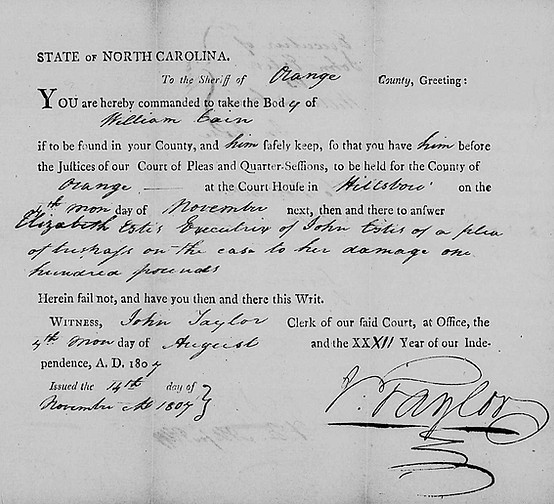 STATE OF NORTH CAROLINA.
To the Sheriff of Orange County, Greeting:
YOU are hereby commanded to take the Body of
William Cain
if to be found in your County, and him safely keep, so that you have him before
the Justices of our Court of Pleas and Quarter-Sessions, to be held for the County of
Orange at the Court House in Hillsboro' on the
4th mon day of November next, then and there to answer
Elizabeth Estis Executrix of John Estis of a plea
of trespass on the case to her damage one
hundred pounds
Herein fail not, and have you then and there this Writ.
WITNESS, John Taylor Clerk of our said Court, at Office, the
4th mon day of August and the XXXII Year of our Inde-
pendence, A. D. 1807
Issued the 14th day of
November 1807
J. Taylor